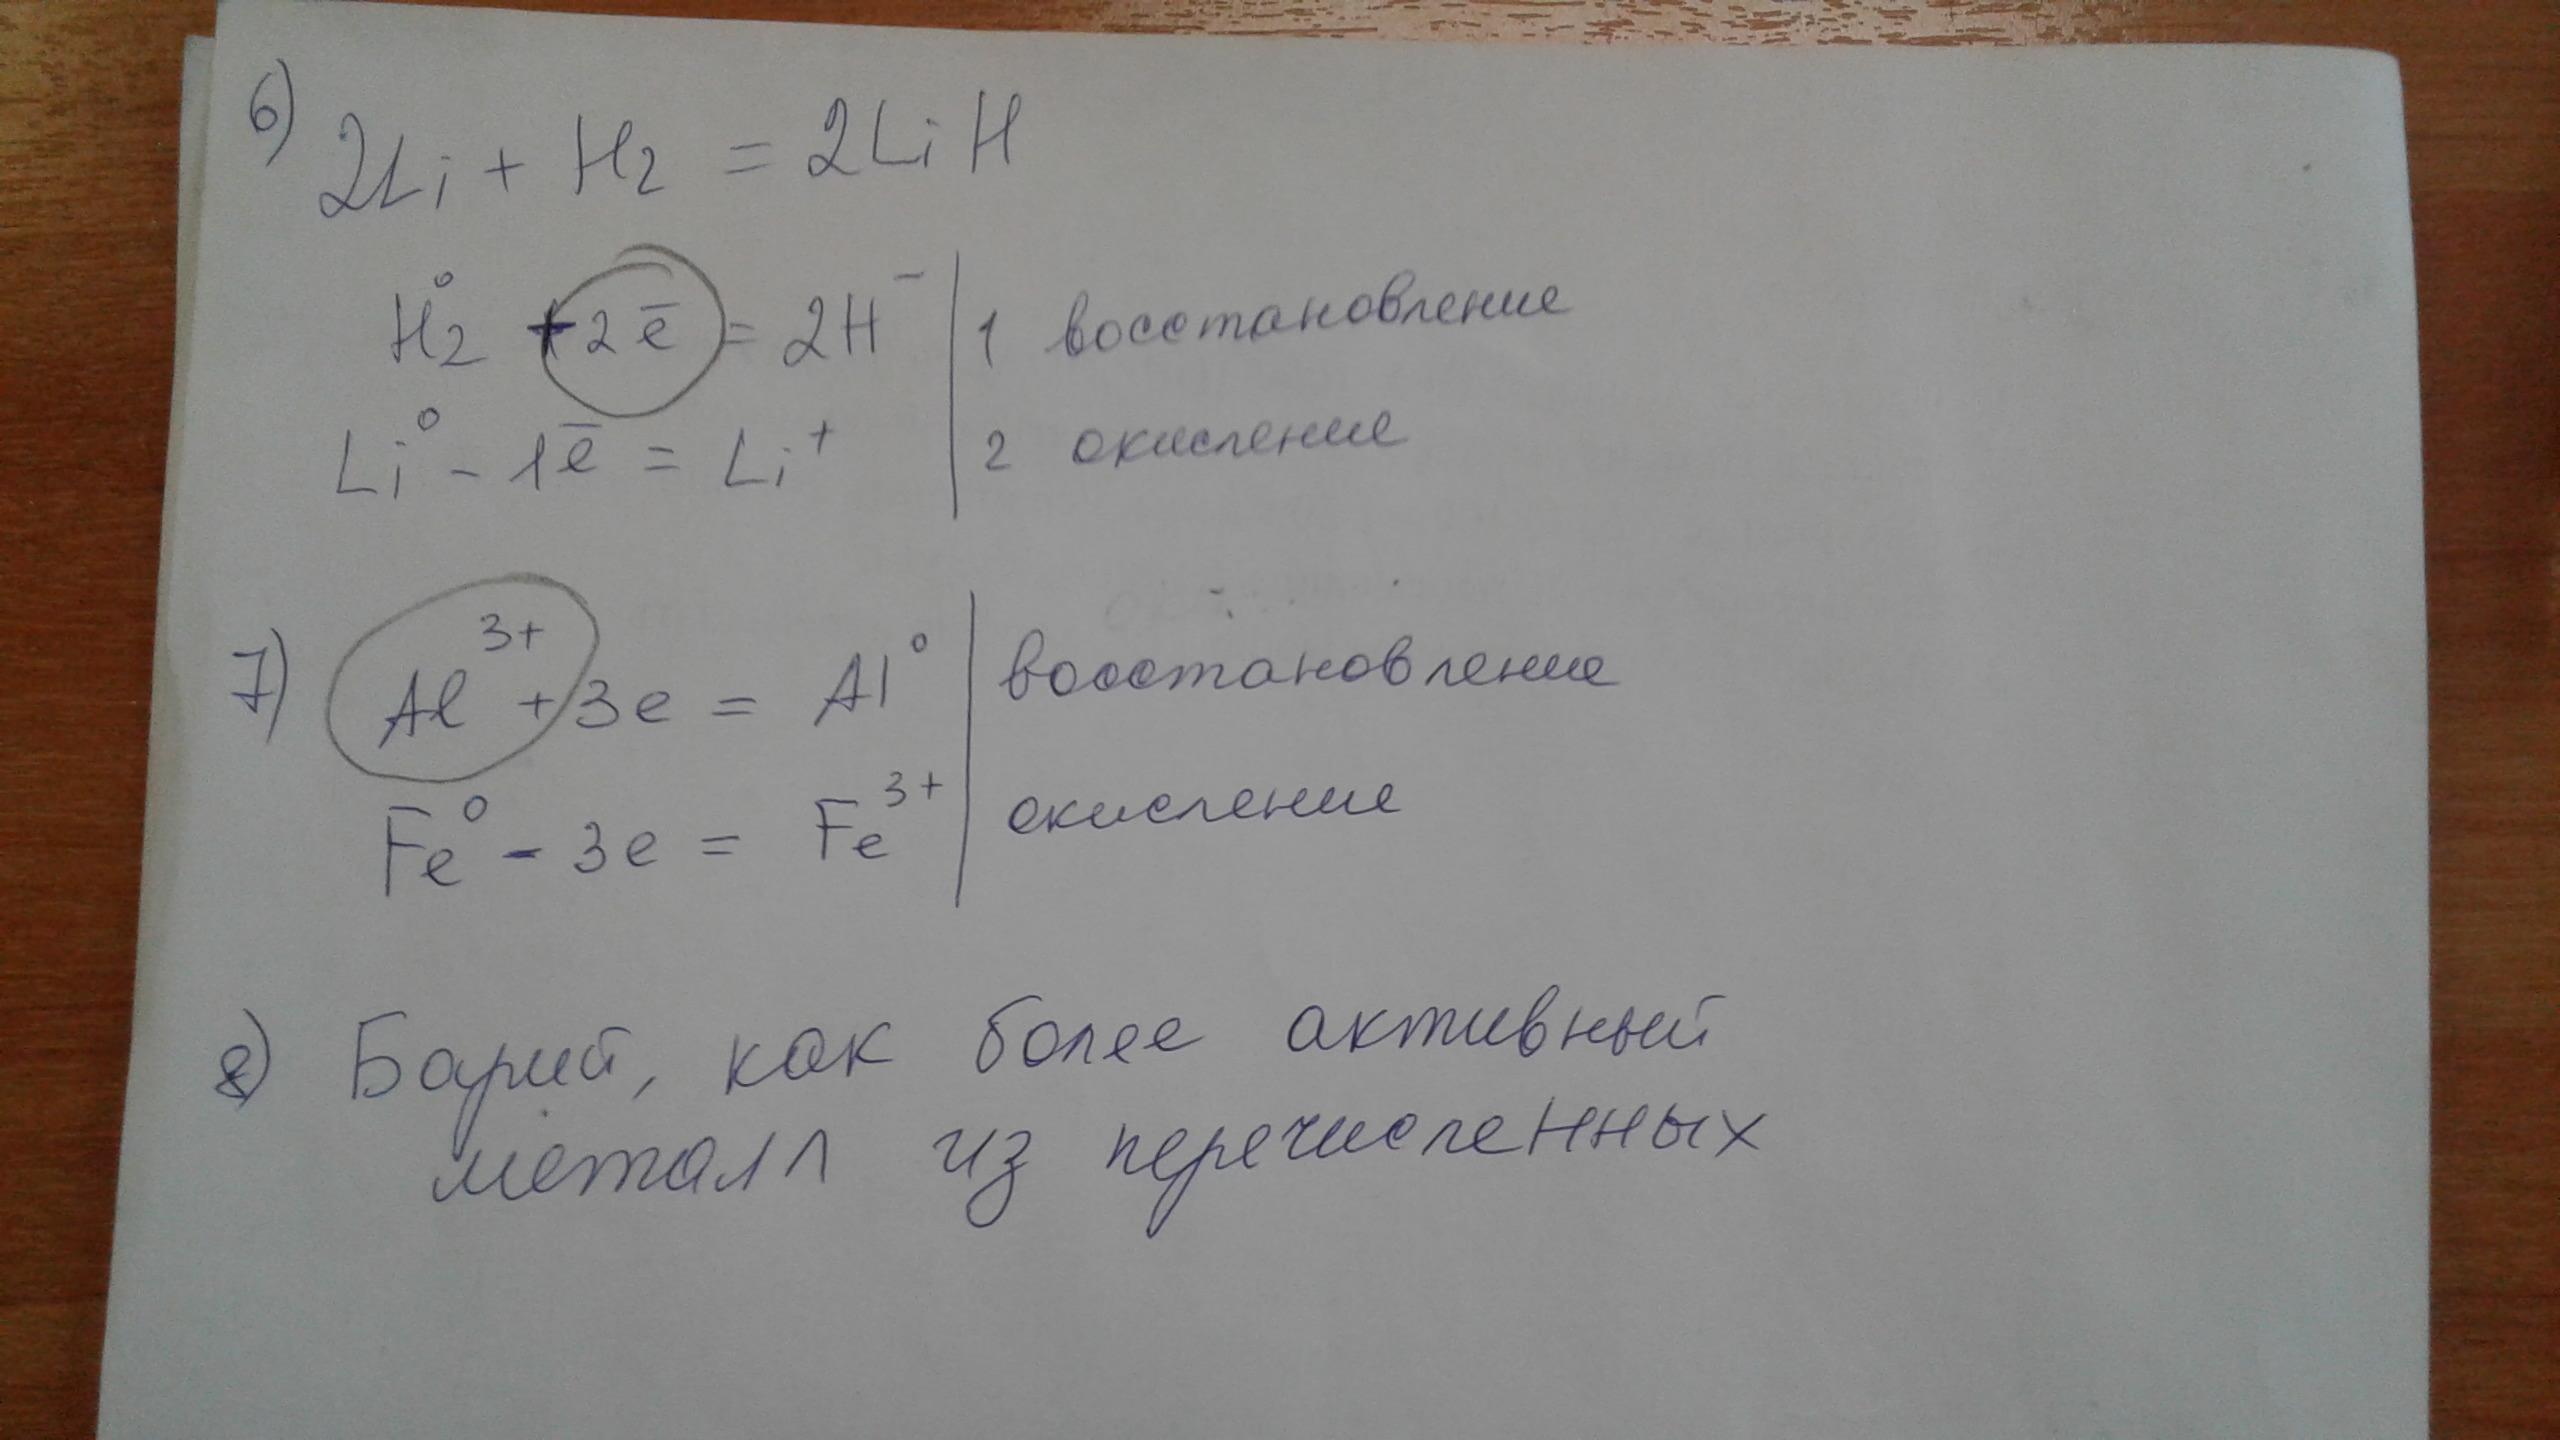 6) 2Li + H₂ = 2LiH
H₂⁰ + 2ē = 2H⁻ | 1 восстановление
Li⁰ - 1ē = Li⁺ | 2 окисление
7) Al³⁺ + 3e = Al⁰ | восстановление
Fe⁰ - 3e = Fe³⁺ | окисление
8) Барий, как более активный
металл из перечисленных